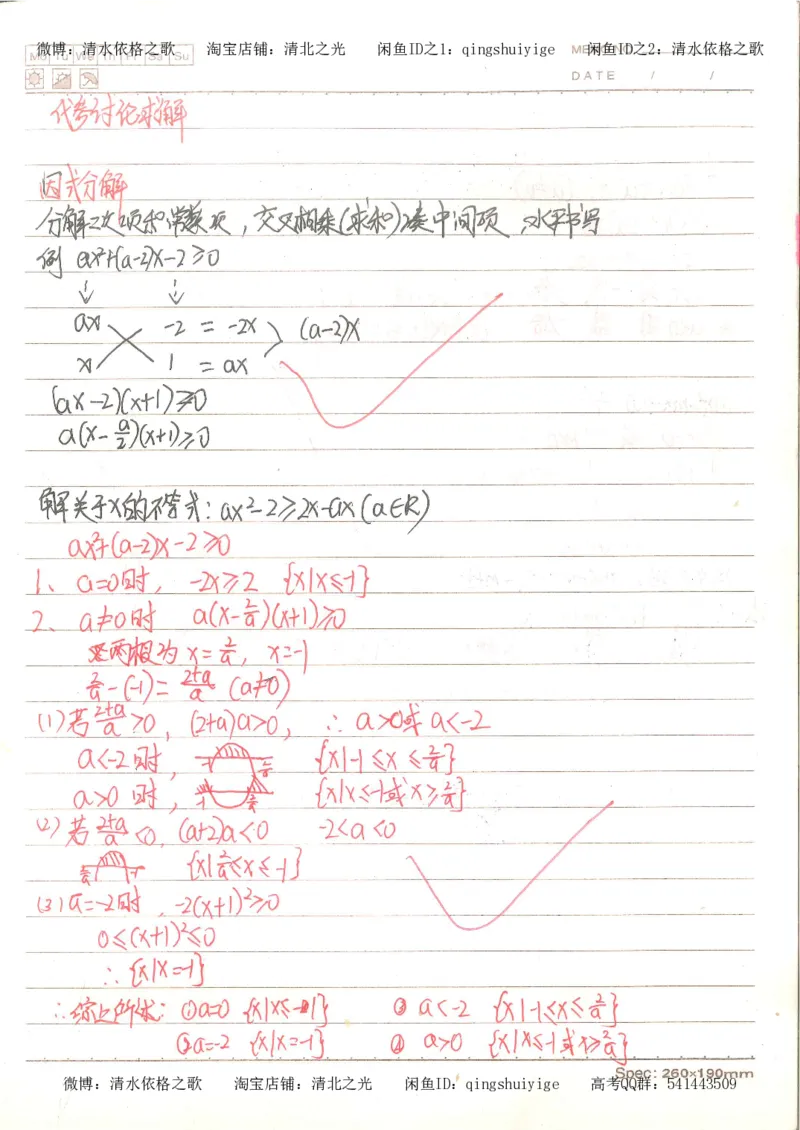 微博：清水依格之歌 淘宝店铺：清北之光 闲鱼ID之1：qingshuiyige 闲鱼ID之2：清水依格之歌
Mo Tu We Th Fr Sa Su
DATE / /
讨论求解
因式分解
分解二次项和常数项，交叉相乘(求和)凑中间项，水平书写
例 ax²+(a-2)x-2≥0
ax -2 = -2x (a-2)x
x 1 = ax
(ax-2)(x+1)≥0
a(x-a/2)(x+1)≥0
解关于x的不等式：ax²-2≥2x-ax(a∈R)
ax²+(a-2)x-2≥0
1、a=0时，-2x≥2 {x|x≤-1}
2、a≠0时 a(x-2/a)(x+1)≥0
两根为x=2/a，x=-1
2/a-(-1)=(2+a)/a (a≠0)
(1)若(2+a)/a>0，(2+a)a>0，∴a>0或a<-2
a<-2时，-1 2/a {x|-1≤x≤2/a}
a>0时，-1 2/a {x|x≤-1或x≥2/a}
(2)若(2+a)/a<0，(a+2)a<0 -2<a<0
2/a -1 {x|2/a≤x≤-1}
(3)a=-2时，-2(x+1)²≥0
0≤(x+1)²≤0
∴{x|x=-1}
∴综上所述：①a=0 {x|x≤-1} ③a<-2 {x|-1≤x≤2/a}
②a=-2 {x|x=-1} ④a>0 {x|x≤-1或x≥2/a}
Spec: 260×190mm
微博：清水依格之歌 淘宝店铺：清北之光 闲鱼ID：qingshuiyige 高考QQ群：541443509